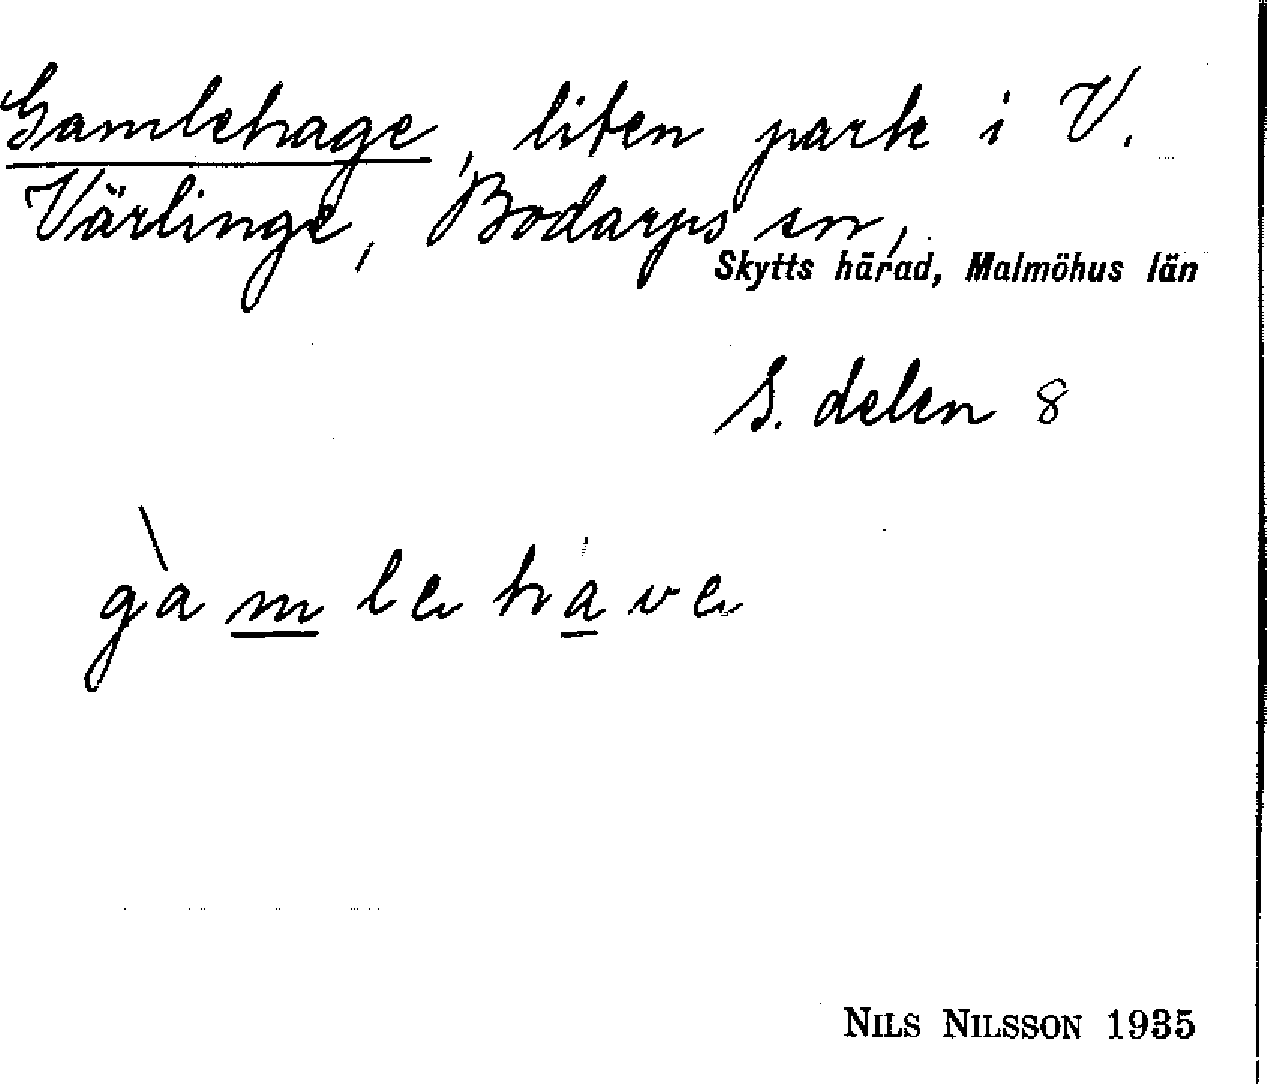 Gamlehage, liten park i V.
Värlinge, Bodarps sn,
Skytts härad, Malmöhus län
S. delen 8
gàmlehave
NILS NILSSON 1935